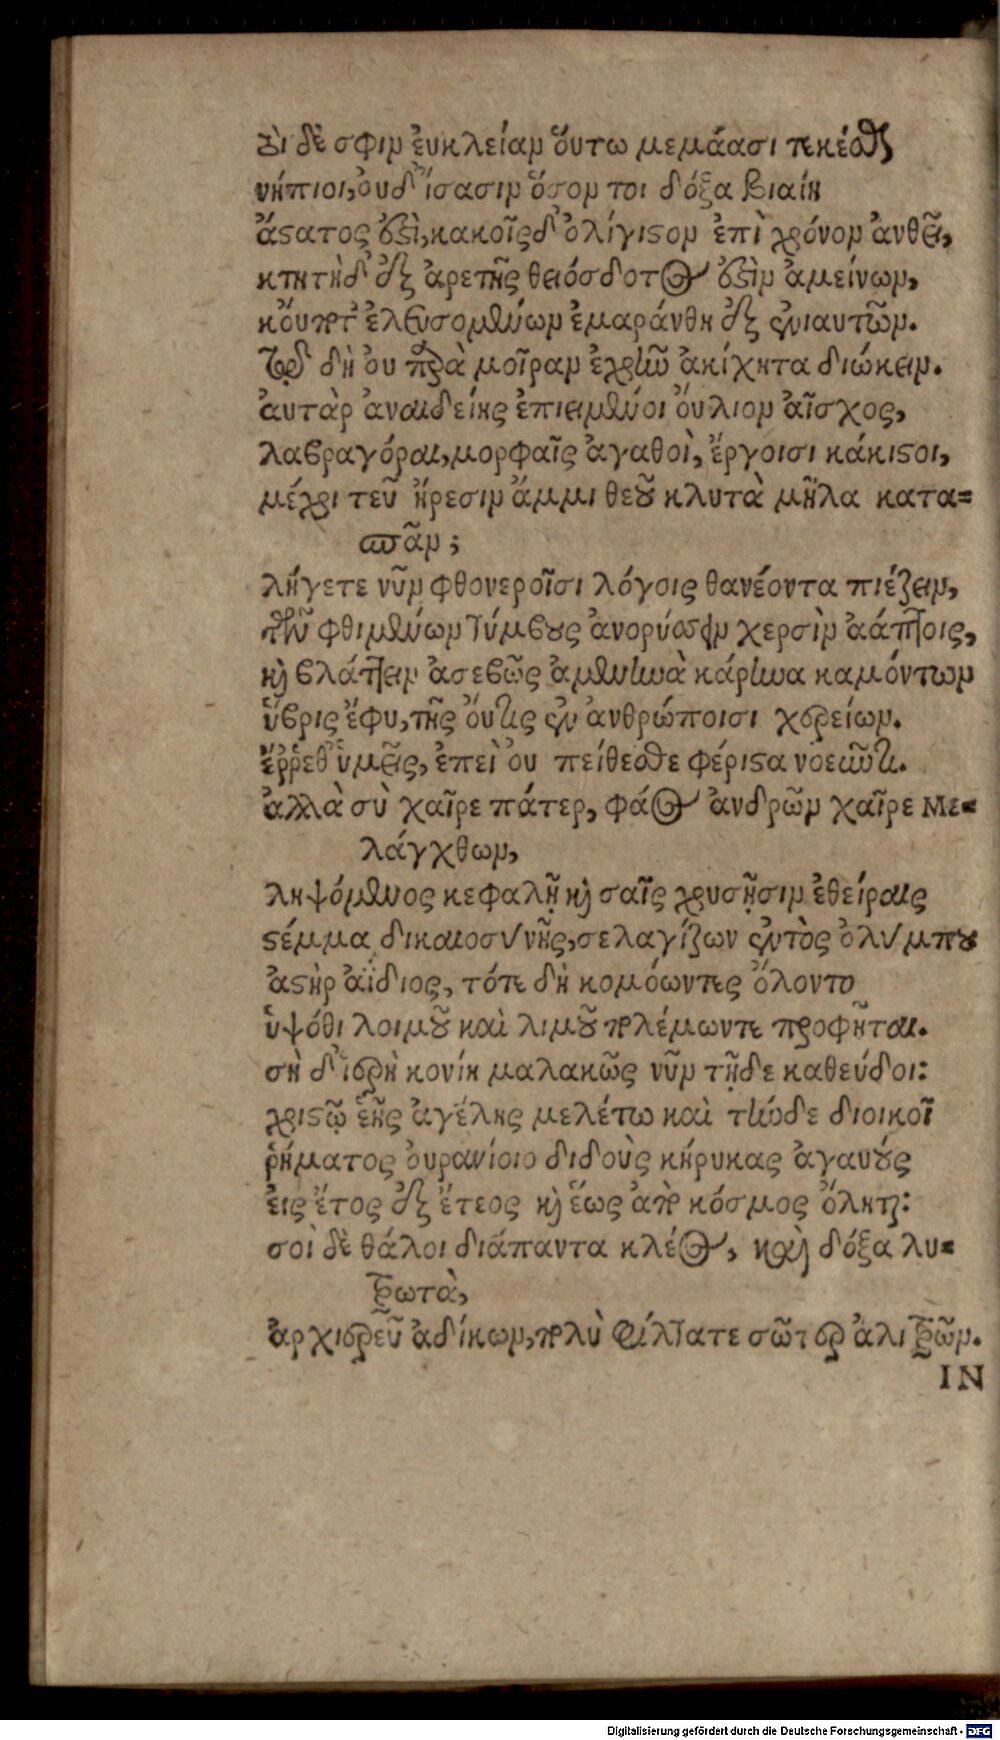 οἱ δὲ σφιν ἐυκλείαν ὅυτω μεμάασι τεκέσθαι
νήπιοι, ὀυδ' ἴσασιν ὅσον τοι δόξα βιαίη
ἄστατος ἐστὶ, κακοῖς δ' ὀλίγιστον ἐπὶ χρόνον ἀνθεῖ,
κτητὴ δ' ἐξ ἀρετῆς θεόσδοτος ἐστὶν ἀμείνων,
ἐμαράνθη ἐξ ἐνιαυτῶν.
δὴ ὀυ παρὰ μοῖραν ἐχρῆν ἀκίχητα διώκειν.
ἀυτὰρ ἀναιδείης ἐπιειμένοι ὄυλιον αἶσχος,
λαβραγόραι, μορφαῖς ἀγαθοὶ, ἔργοισι κάκιστοι,
μέχρι τεῦ ἤρεσιν ἄμμι θεοῦ κλυτὰ μῆλα κατα=
σπᾶν;
λήγετε νῦν φθονεροῖσι λόγοις θανέοντα πιέζειν,
τῶν φθιμένων τύμβους ἀνορύσσειν χερσὶν ἀάπτοις,
καὶ βλάπτειν ἀσεβῶς ἀμενηνὰ κάρηνα καμόντων
ὕβρις ἔφυ, τῆς ὄυτις ἐν ἀνθρώποισι χερείων.
ἔῤῥεθ' ὑμεῖς, ἐπεὶ ὀυ πείθεσθε φέριστα νοεῦντι.
ἀλλὰ σὺ χαῖρε πάτερ, φάος ἀνδρῶν χαῖρε Με=
λάγχθων,
ληψόμενος κεφαλῇ καὶ σαῖς χρυσῇσιν ἐθείραις
στέμμα δικαιοσύνης, σελαγίζων ἐντὸς ὀλύμπου
ἀστὴρ ἀΐδιος, τότε δὴ κομόωντες ὄλοντο
ὑψόθι λοιμοῦ καὶ λιμοῦ πολέμωντε προφῆται.
σὴ δ' ἱερὴ κονίη μαλακῶς νῦν τῇδε καθεύδοι:
χριστῷ ἑῆς ἀγέλης μελέτω καὶ τήνδε διοικοῖ
ῥήματος ὀυρανίοιο διδοὺς κήρυκας ἀγαυούς
εἰς ἔτος ἐξ ἔτεος καὶ ἕως ἀπο κόσμος ὄληται:
σοὶ δὲ θάλοι διάπαντα κλέος, καὶ δόξα λυ=
γρωτὰ,
ἀρχιερεῦ ἀδίκων, πολὺ φίλτατε σῶτερ ἀλιτρῶν.
IN
Digitalisierung gefördert durch die Deutsche Forschungsgemeinschaft - DFG